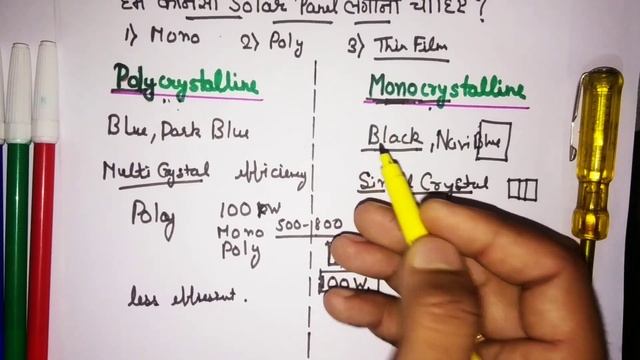 हमे कौनसा Solar Panel लगाना चाहिए ?
1) Mono 2) Poly 3) Thin Film
Polycrystalline
Blue, Dark Blue
Multi Crystal efficiency
Poloy 100 kw
Mono 500-800
Poly
less effresent.
Monocrystalline
Black, Navi Blue
Crystal
100 W